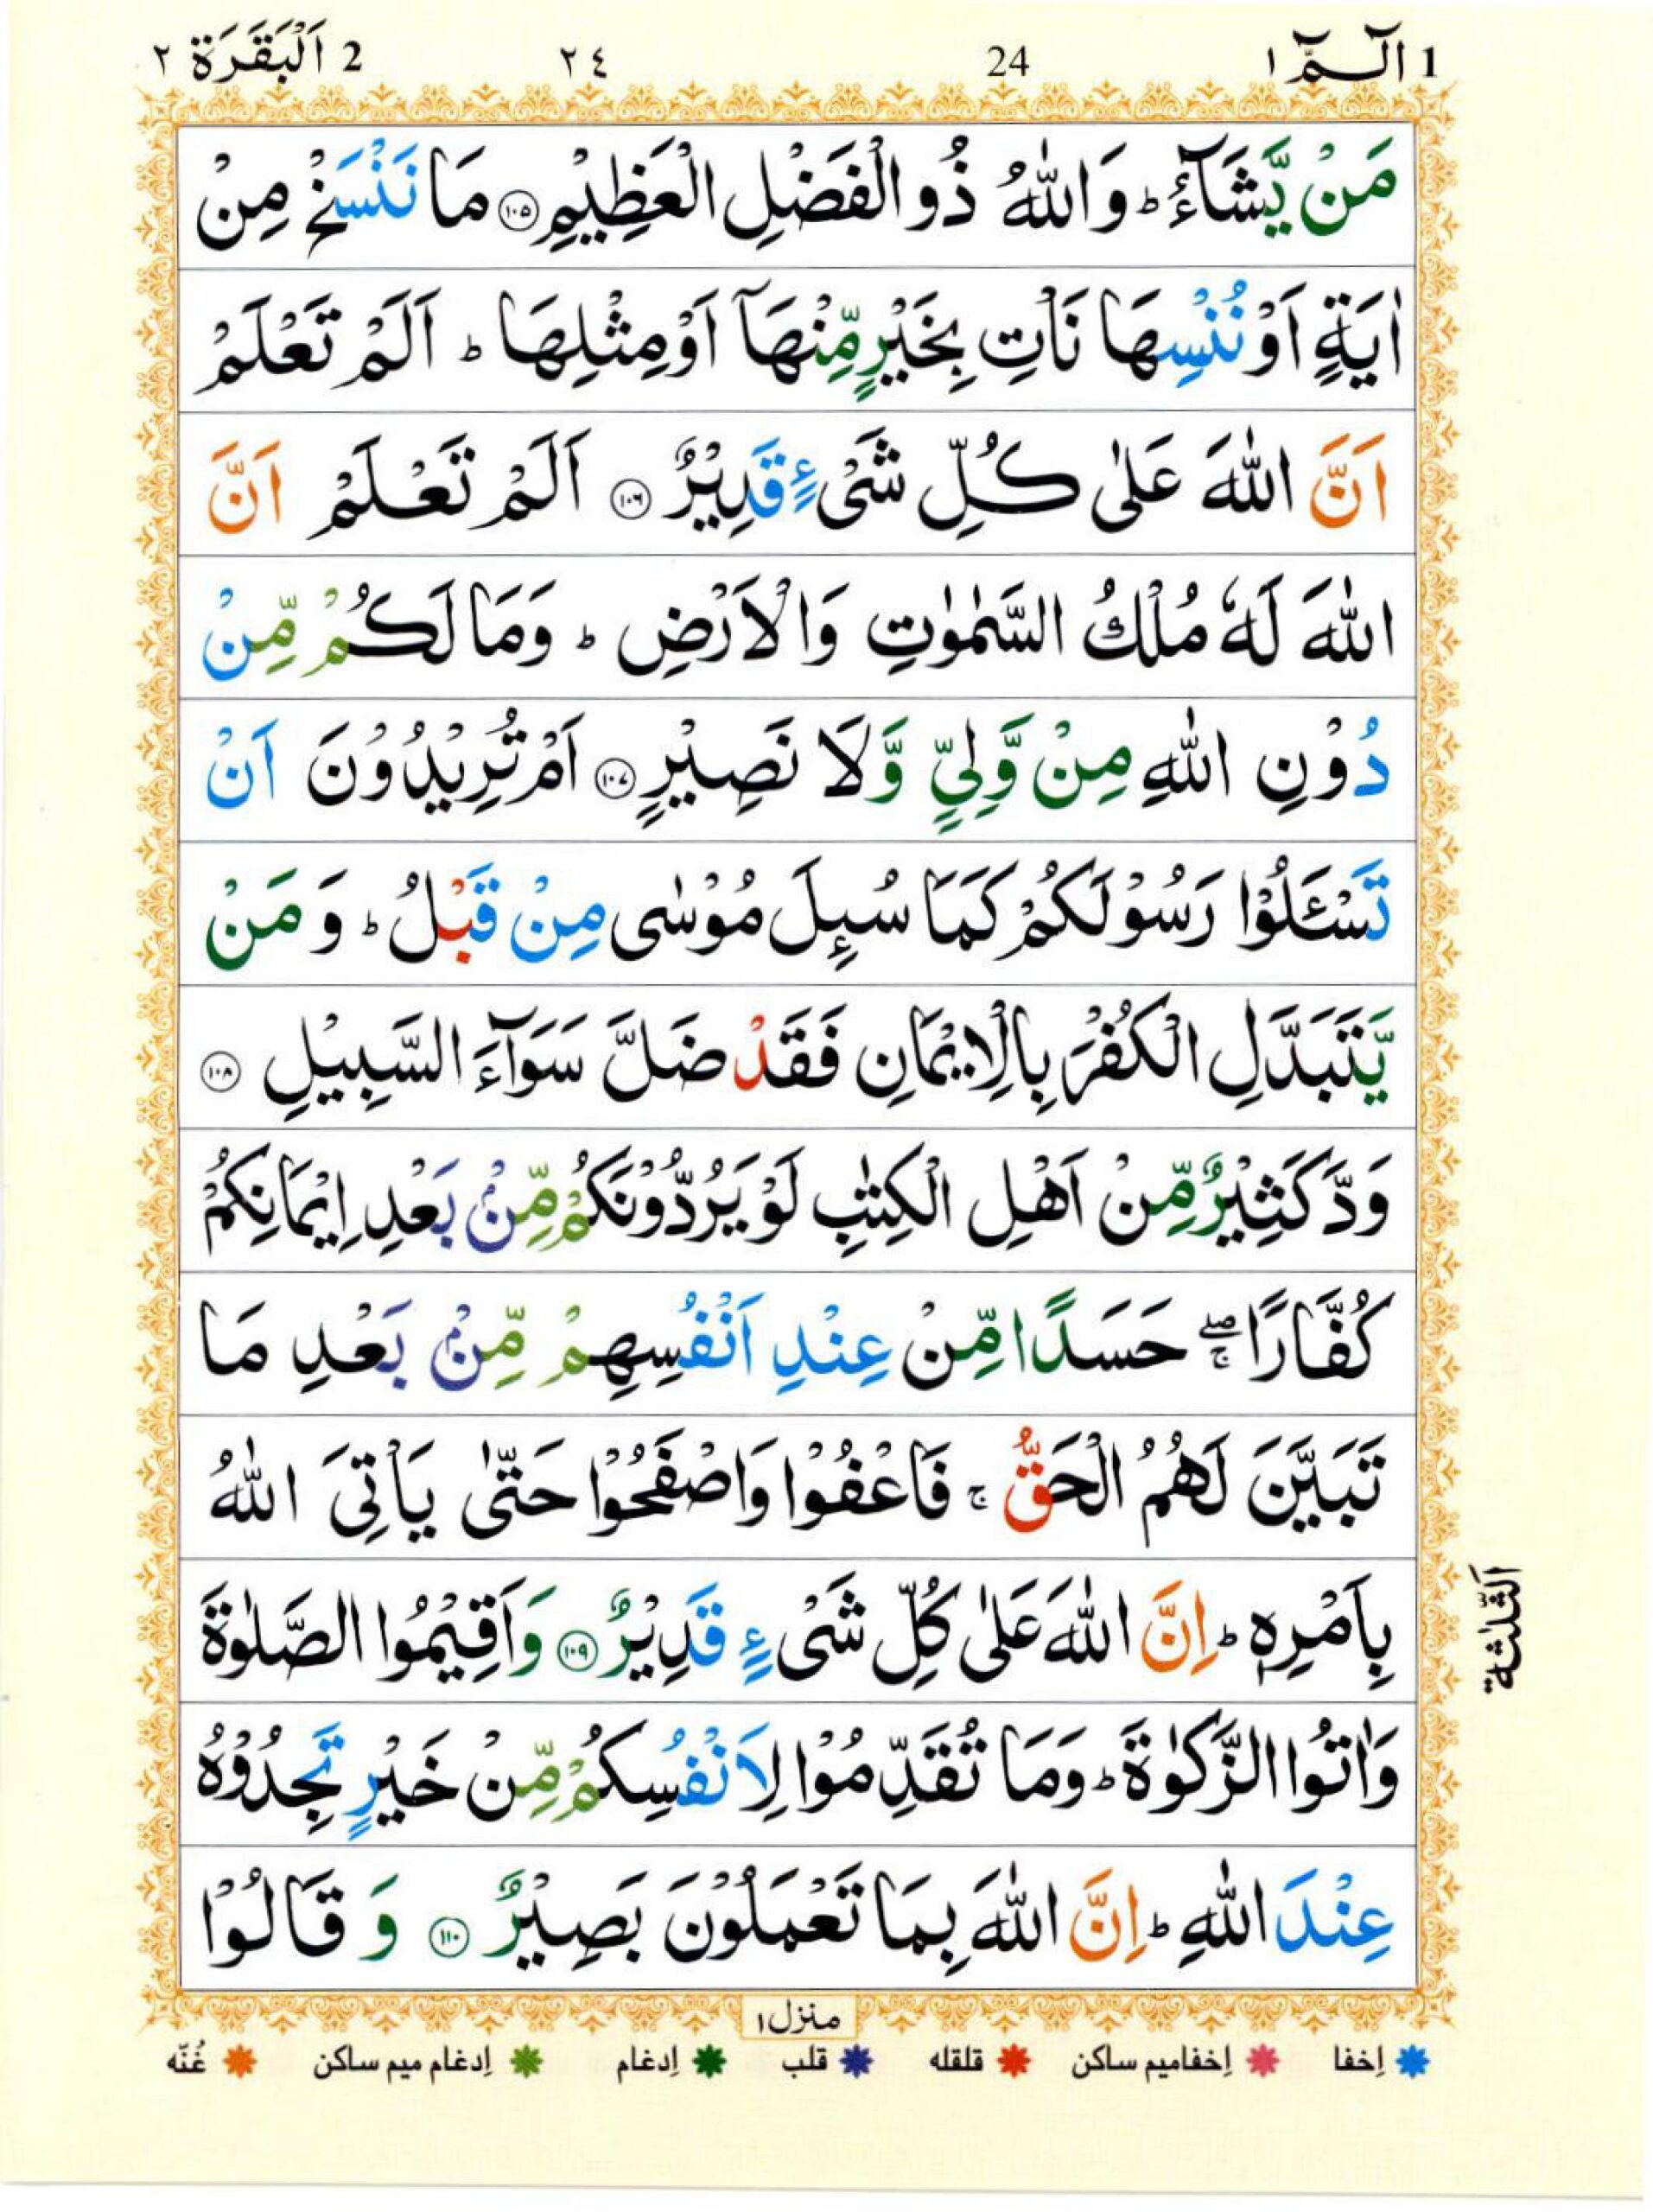 1 الٓـمّٓ ١ 24 ٢٤ 2 اَلْبَقَرَة ٢
مَنْ يَّشَآءُ ؕ وَاللّٰهُ ذُو الْفَضْلِ الْعَظِيْمِ ۝۱۰۵ مَا نَنْسَخْ مِنْ
اٰيَةٍ اَوْ نُنْسِهَا نَاْتِ بِخَيْرٍ مِّنْهَاۤ اَوْ مِثْلِهَا ؕ اَلَمْ تَعْلَمْ
اَنَّ اللّٰهَ عَلٰى كُلِّ شَىْءٍ قَدِيْرٌ ۝۱۰۶ اَلَمْ تَعْلَمْ اَنَّ
اللّٰهَ لَهٗ مُلْكُ السَّمٰوٰتِ وَالْاَرْضِ ؕ وَمَا لَكُمْ مِّنْ
دُوْنِ اللّٰهِ مِنْ وَّلِىٍّ وَّلَا نَصِيْرٍ ۝۱۰۷ اَمْ تُرِيْدُوْنَ اَنْ
تَسْـَٔلُوْا رَسُوْلَكُمْ كَمَا سُىِٕلَ مُوْسٰى مِنْ قَبْلُ ؕ وَ مَنْ
يَّتَبَدَّلِ الْكُفْرَ بِالْاِيْمَانِ فَقَدْ ضَلَّ سَوَآءَ السَّبِيْلِ ۝۱۰۸
وَدَّ كَثِيْرٌ مِّنْ اَهْلِ الْكِتٰبِ لَوْ يَرُدُّوْنَكُمْ مِّنْۢ بَعْدِ اِيْمَانِكُمْ
كُفَّارًا ۖۚ حَسَدًا مِّنْ عِنْدِ اَنْفُسِهِمْ مِّنْۢ بَعْدِ مَا
تَبَيَّنَ لَهُمُ الْحَقُّ ۚ فَاعْفُوْا وَاصْفَحُوْا حَتّٰى يَاْتِىَ اللّٰهُ
بِاَمْرِهٖ ؕ اِنَّ اللّٰهَ عَلٰى كُلِّ شَىْءٍ قَدِيْرٌ ۝۱۰۹ وَاَقِيْمُوا الصَّلٰوةَ
الثلٰثة
وَاٰتُوا الزَّكٰوةَ ؕ وَمَا تُقَدِّمُوْا لِاَنْفُسِكُمْ مِّنْ خَيْرٍ تَجِدُوْهُ
عِنْدَ اللّٰهِ ؕ اِنَّ اللّٰهَ بِمَا تَعْمَلُوْنَ بَصِيْرٌ ۝۱۱۰ وَ قَالُوْا
منزل ١
اِخفا اِخفامیم ساکن قلقله قلب اِدغام اِدغام میم ساکن غُنّه